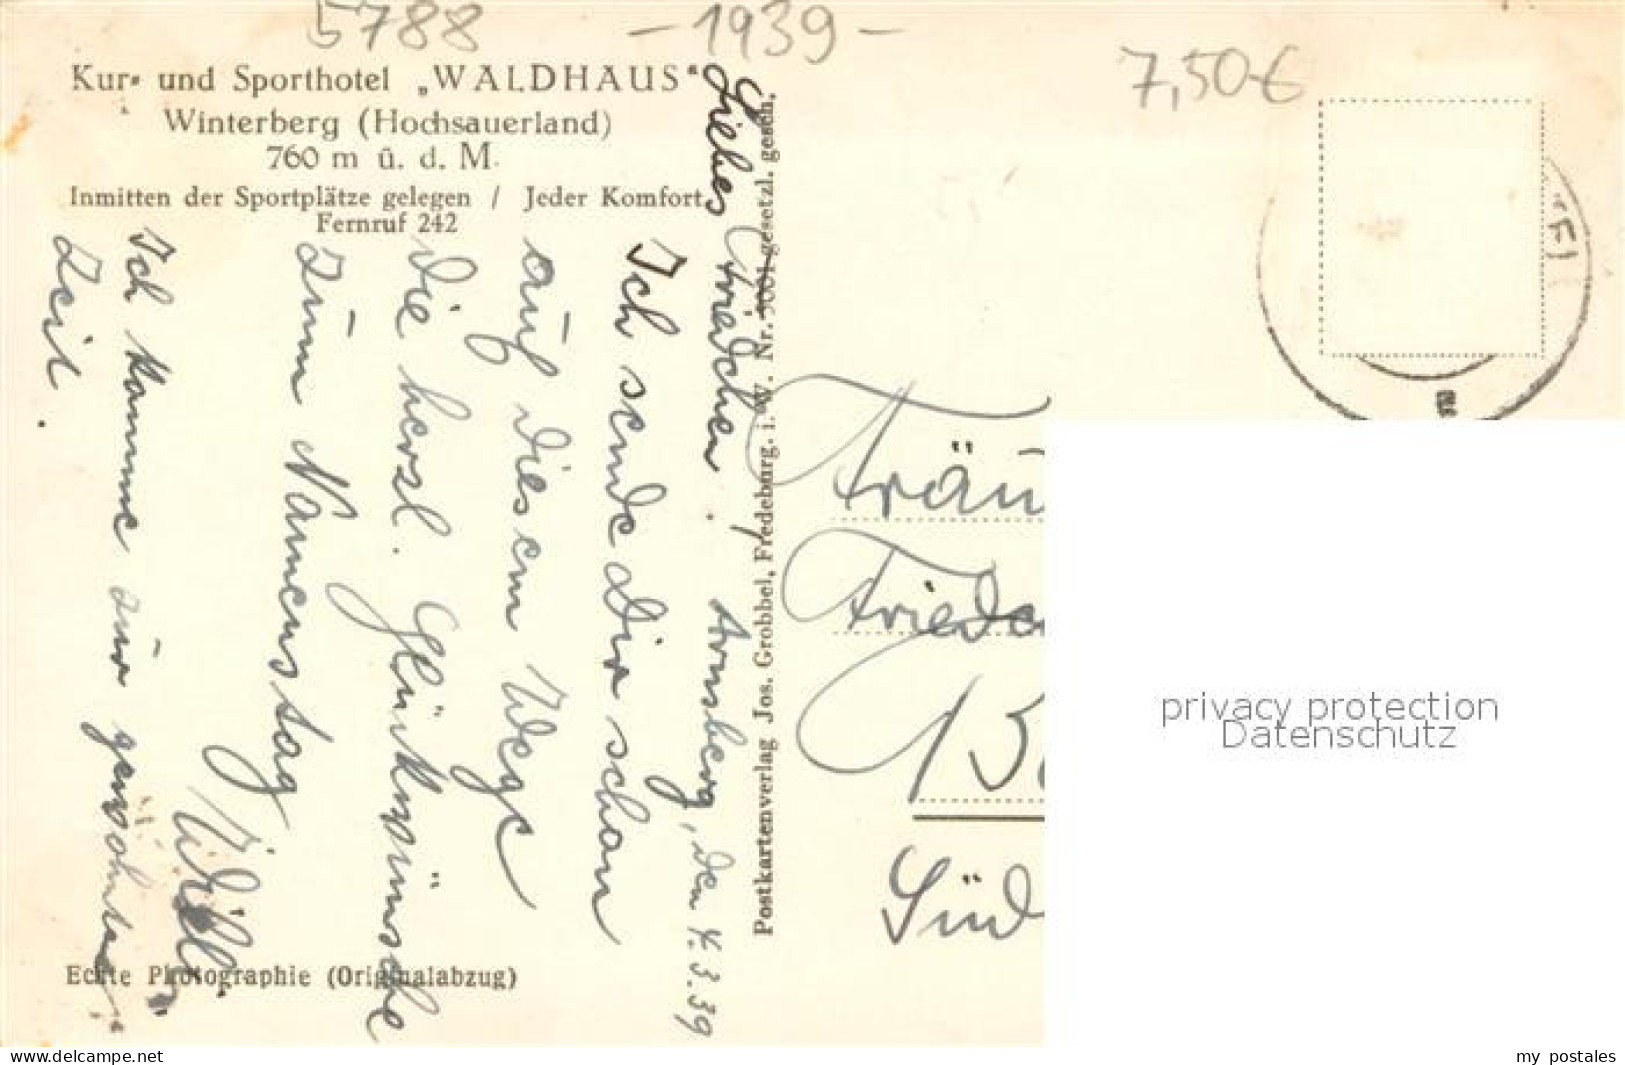 5788
-1939-
7,50€
Kur- und Sporthotel „WALDHAUS“
Winterberg (Hochsauerland)
760 m ü. d. M.
Inmitten der Sportplätze gelegen / Jeder Komfort
Fernruf 242
Arnsberg, den 4.3.39
Liebes Friedchen.
Ich sende Dir schon
auf diesem Wege
die herzl. Glückwünsche
zum Namenstag
Willi.
Ich komme zur gewohnten
Zeit.
Echte Photographie (Originalabzug)
Postkartenverlag Jos. Grobbel, Fredeburg. i. W. Nr. gesetzl. gesch.
Fräu
Friede
Süd
privacy protection
Datenschutz
www.delcampe.net
my_postales